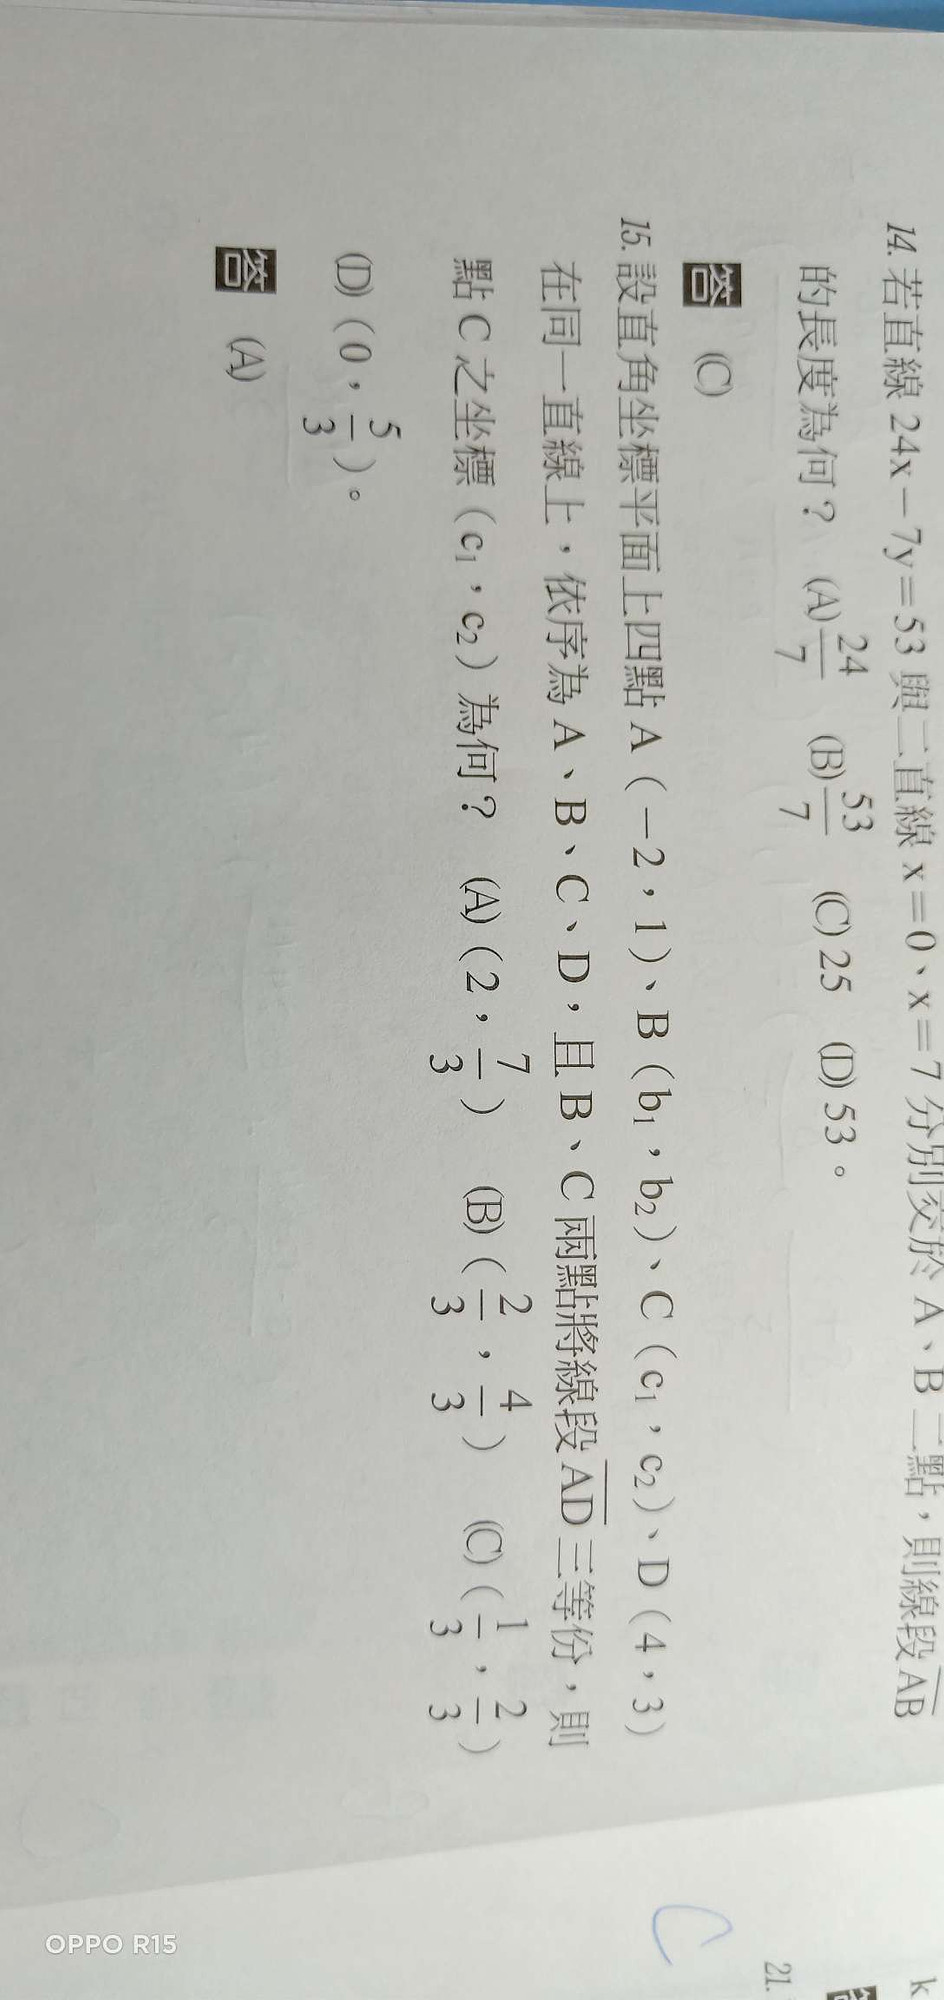 14. 若直線 24x－7y＝53 與二直線 x＝0、x＝7 分別交於 A、B 二點，則線段 AB
的長度為何？ (A) 24/7 (B) 53/7 (C) 25 (D) 53。
答 (C)
15. 設直角坐標平面上四點 A（－2，1）、B（b₁，b₂）、C（c₁，c₂）、D（4，3）
在同一直線上，依序為 A、B、C、D，且 B、C 兩點將線段 AD 三等份，則
點 C 之坐標（c₁，c₂）為何？ (A)（2，7/3） (B)（2/3，4/3） (C)（1/3，2/3）
(D)（0，5/3）。
答 (A)
k
答
21.
C
OPPO R15